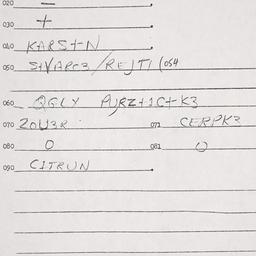 020 –
030 +
040 KARStN
050 StVAREZ/REJTI (054
060 QGLY PURZt1Ct K3
070 ZOU3R 071 CERPK3
080 0 081 0
090 CITRUN